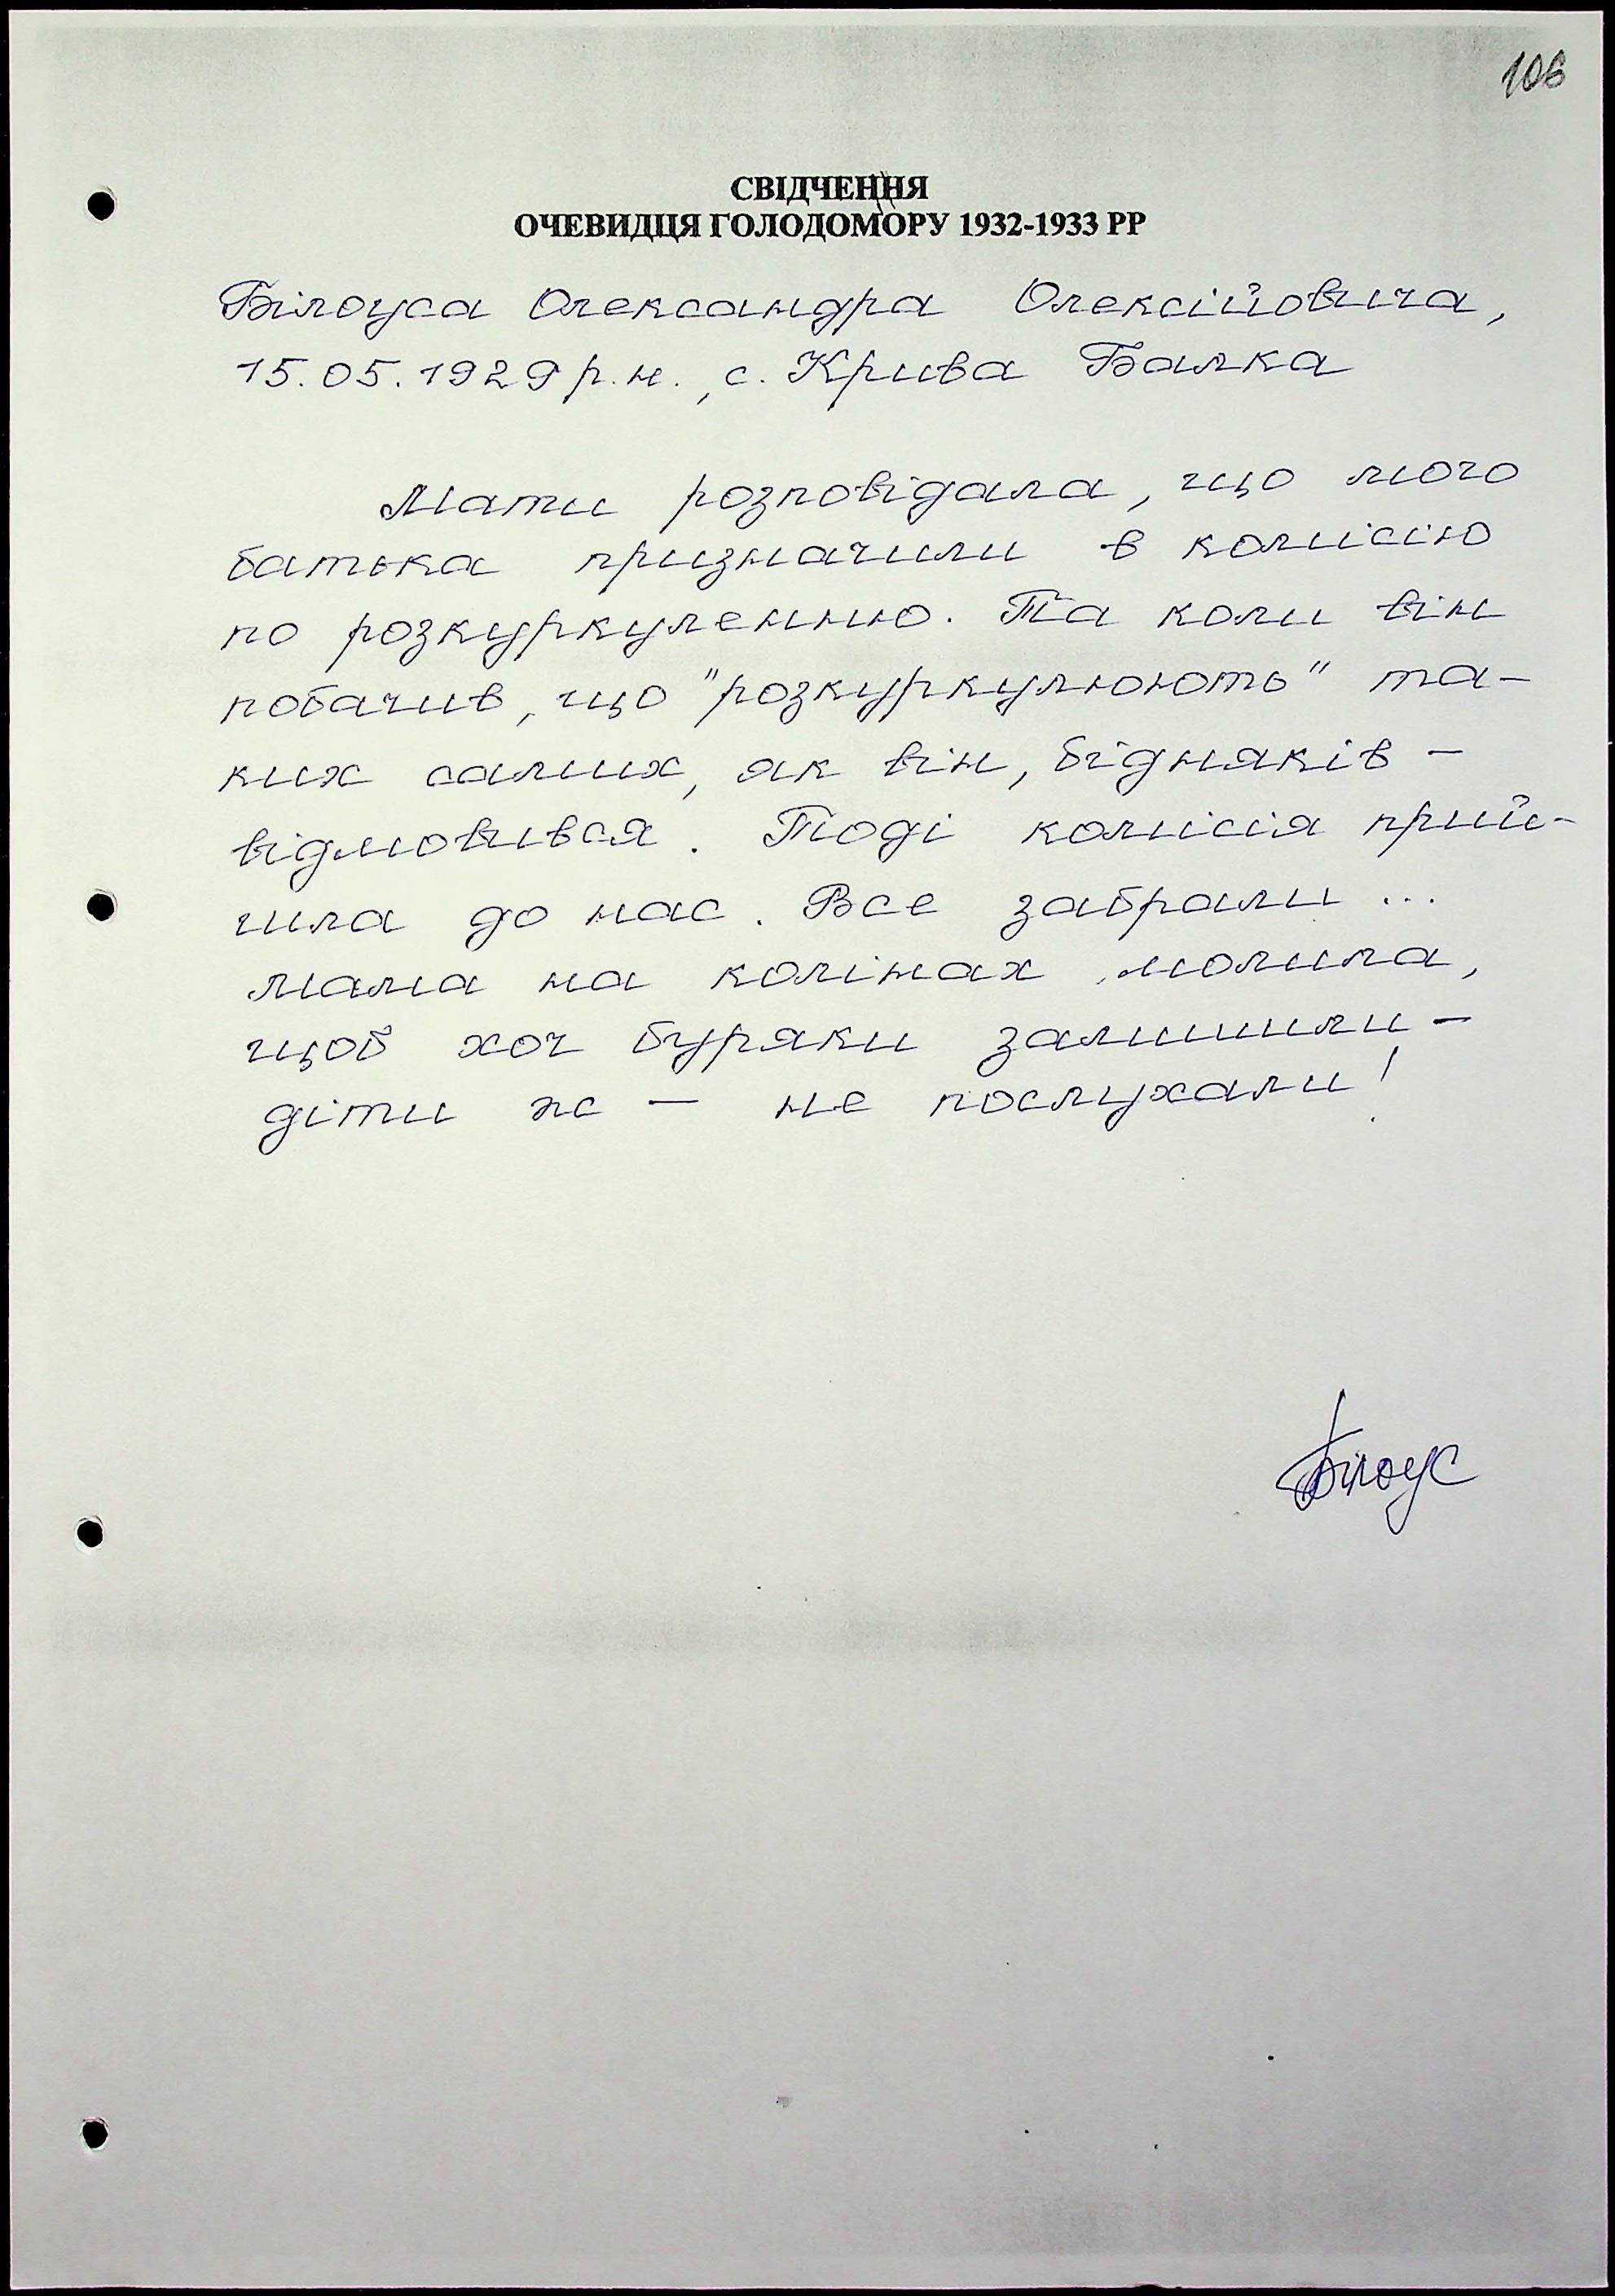 106
СВІДЧЕННЯ
ОЧЕВИДЦЯ ГОЛОДОМОРУ 1932-1933 РР
Білоуса Олександра Олексійовича,
15.05.1929 р.н., с. Крива Балка
Мати розповідала, що мого
батька призначили в комісію
по розкуркуленню. Та коли він
побачив, що "розкуркулюють" та-
ких самих, як він, бідняків –
відмовився. Тоді комісія прий-
шла до нас. Все забрали...
мама на колінах молила,
щоб хоч буряки залишили –
діти ж – не послухали!
Білоус